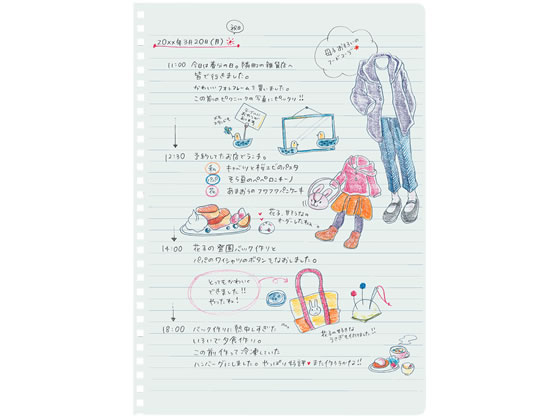 祝日
20xx年3月20日(月)
母子おそろいの
コーデ
11:00 今日は春分の日。隣町の雑貨店へ
皆で行きました。
かわいいフォトフレームを買いました。
この前のピクニックの写真にピッタリ!!
12:30 予約してたお店でランチ。
キャベツと桜エビのパスタ
そら豆のペペロンチーノ
花 あまおうのフワフワパンケーキ
花子、甘そうなの
オーダーしたねぇ
14:00 花子の育園バック作りと
パパのワイシャツのボタンをなおしました。
とってもかわいく
できました!!
やったね!
18:00 バック作りに熱中しすぎた
いろいで夕食作り。
この前作って冷凍していた
ハンバーグにしました。やっぱり好評♥また作ろうかな!!